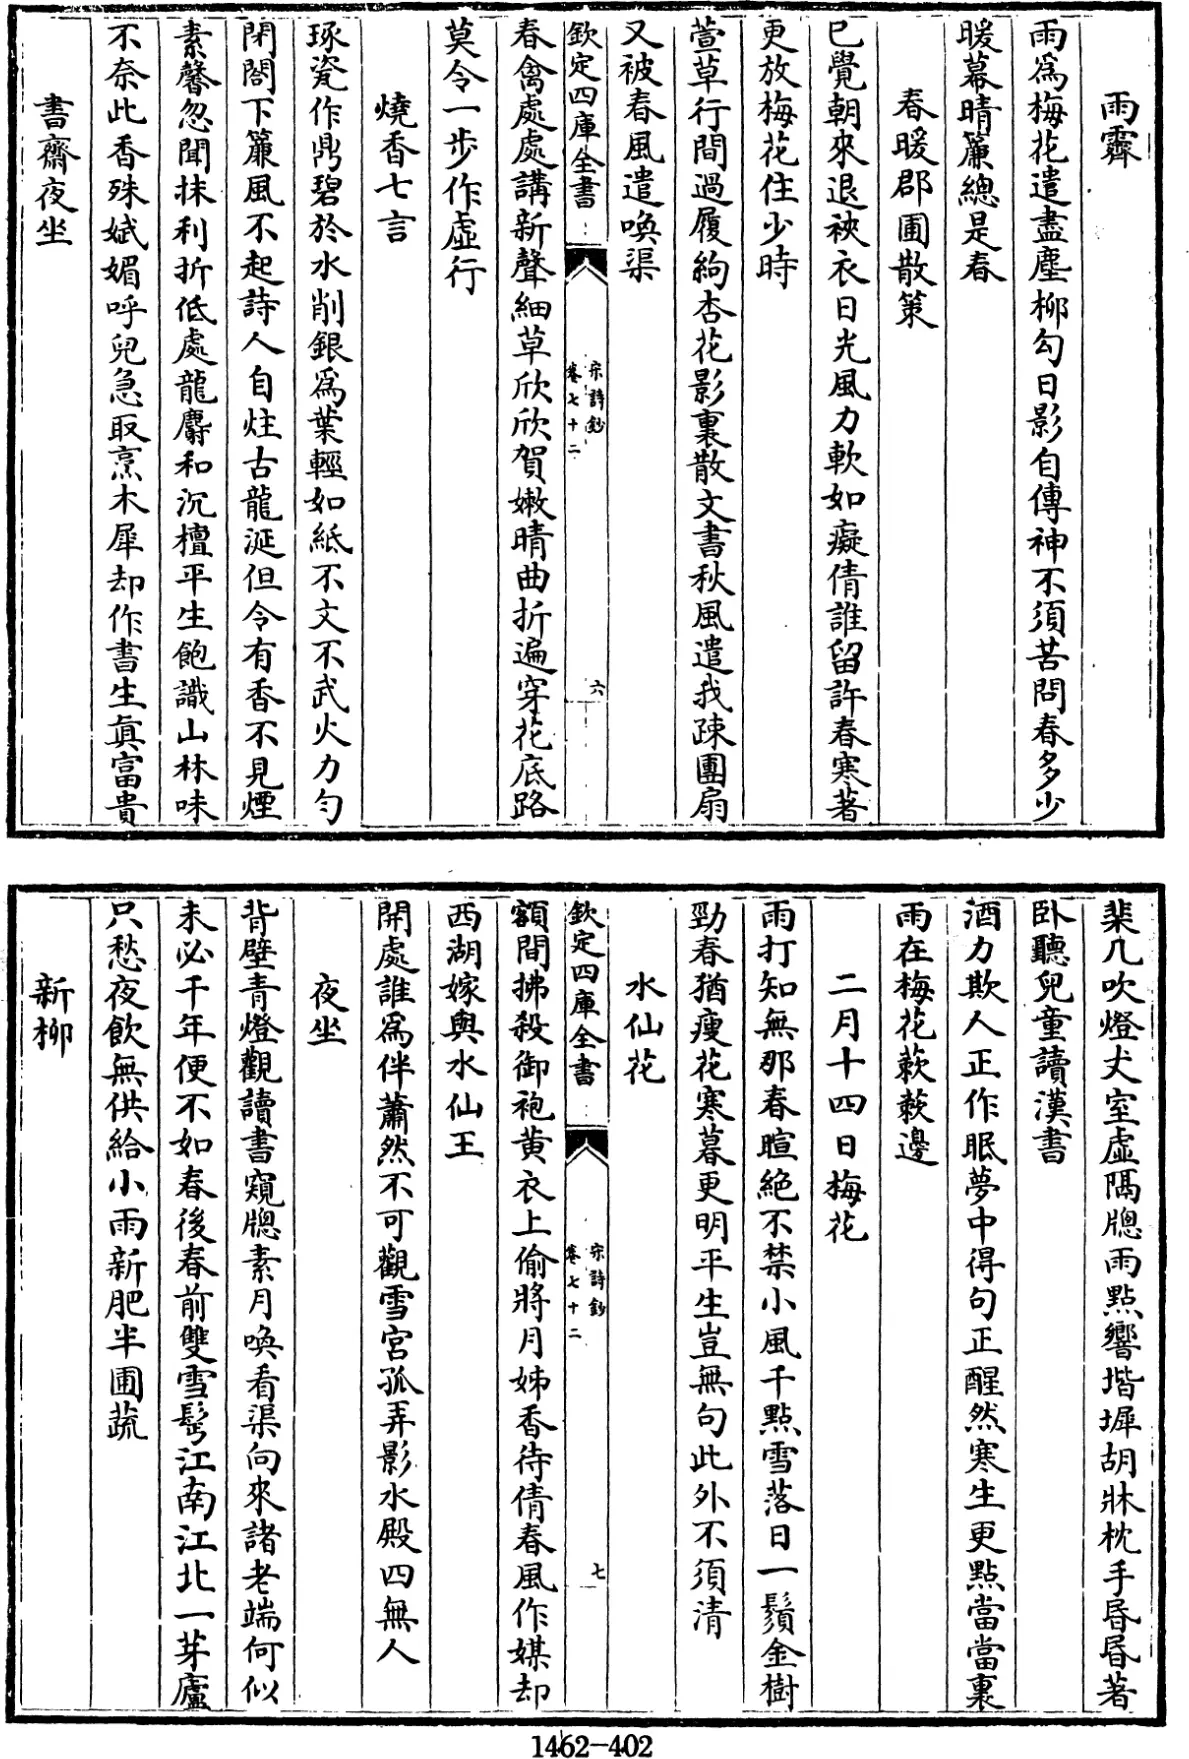 雨霽
雨爲梅花遣盡塵柳勾日影自傳神不須苦問春多少
暖幕晴簾總是春
春暖郡圃散策
已覺朝來退裌衣日光風力軟如癡倩誰留許春寒著
更放梅花住少時
萱草行間過履絇杏花影裏散文書秋風遣我踈團扇
又被春風遣喚渠
欽定四庫全書
宋詩鈔
卷七十二
六
春禽處處講新聲細草欣欣賀嫩晴曲折遍穿花底路
莫令一步作虛行
燒香七言
琢瓷作鼎碧於水削銀爲葉輕如紙不文不武火力勻
閉閤下簾風不起詩人自炷古龍涎但令有香不見煙
素馨忽聞抹利折低處龍麝和沉檀平生飽識山林味
不奈此香殊娬媚呼兒急取烹木犀却作書生眞富貴
書齋夜坐
棐几吹燈丈室虛隔牕雨點響堦墀胡牀枕手昏昏著
卧聽兒童讀漢書
酒力欺人正作眠夢中得句正醒然寒生更點當當裏
雨在梅花蔌蔌邊
二月十四日梅花
雨打知無那春暄絶不禁小風千點雪落日一鬚金樹
勁春猶瘦花寒暮更明平生豈無句此外不須清
水仙花
欽定四庫全書
宋詩鈔
卷七十二
七
額間拂殺御袍黄衣上偷將月姊香待倩春風作媒却
西湖嫁與水仙王
開處誰爲伴蕭然不可觀雪宮孤弄影水殿四無人
夜坐
背壁青燈觀讀書窺牕素月喚看渠向來諸老端何似
未必千年便不如春後春前雙雪鬂江南江北一芽廬
只愁夜飲無供給小雨新肥半圃蔬
新柳
1462-402